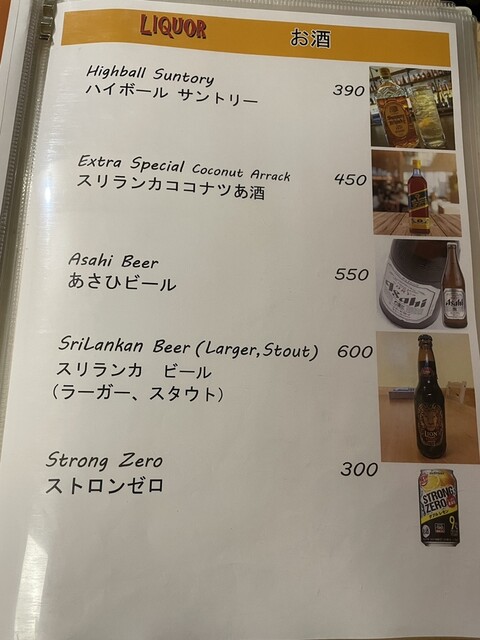 LIQUOR お酒
Highball Suntory
ハイボール サントリー 390
Extra Special Coconut Arrack
スリランカココナツあ酒 450
Asahi Beer
あさひビール 550
Asahi
Asahi
SriLankan Beer (Larger,Stout) 600
スリランカ ビール
(ラーガー、スタウト)
LION
Strong Zero
ストロンゼロ 300
STRONG
ZERO
9